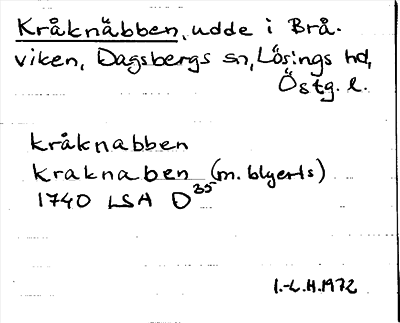 Kråknäbben, udde i Brå-
viken, Dagsbergs sn, Lösings hd,
Östg. l.
kråknabben
kraknaben (m. blyerts)
1740 LSA D35
I.-L.H. 1972